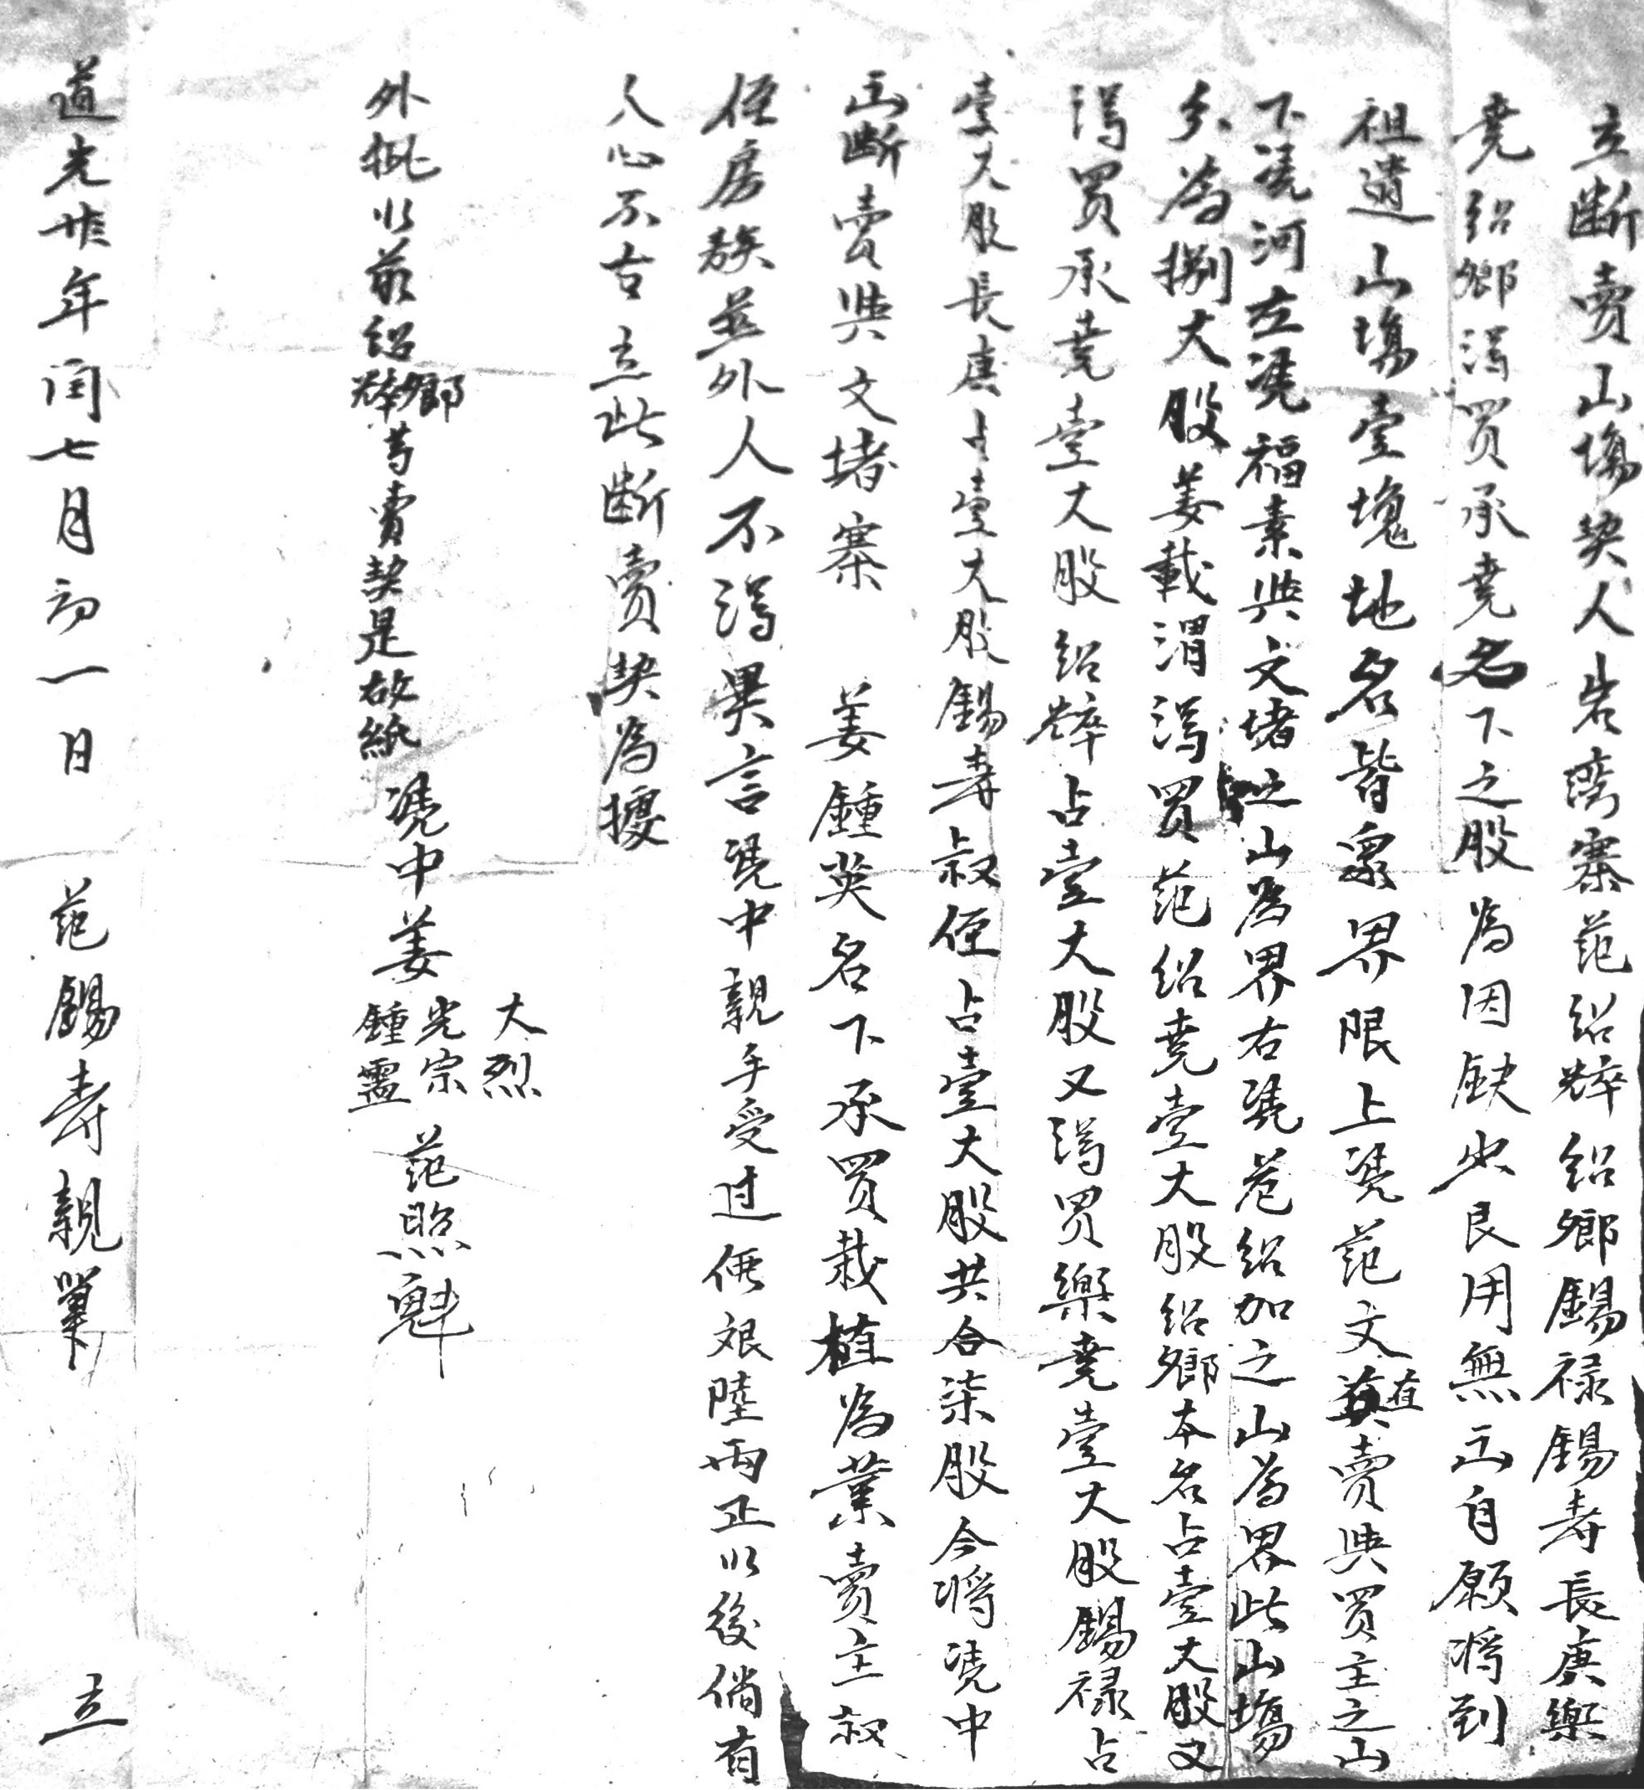 立断賣山塲契人岩湾寨范紹粹紹鄉錫禄錫寿長庚樂
堯紹鄉淂買承堯名下之股為因缺少艮用無山自願将到
祖遺山塲壹塊地名皆衆界限上凴范文英直賣與買主之山
下凴河左凴福素與文堵之山為界右凴范紹加之山為界此山塲
分為捌大股姜載渭淂買范紹堯壹大股紹鄉本名占壹大股又
淂買承堯壹大股紹粹占壹大股又淂買樂堯壹大股錫禄占
壹大股長庚占壹大股錫寿叔侄占壹大股共合柒股今将凴中
山断賣與文堵寨 姜鍾英名下承買栽植為業賣主叔
侄房族並外人不淂異言凴中親手受过價銀陸両正以後倘有
人心不古立此断賣契為據
外批以前紹鄉粹等賣契是故紙 凴中姜大烈光宗鍾靈 范照魁
道光廿六年闰七月初一日 范錫寿親筆 立